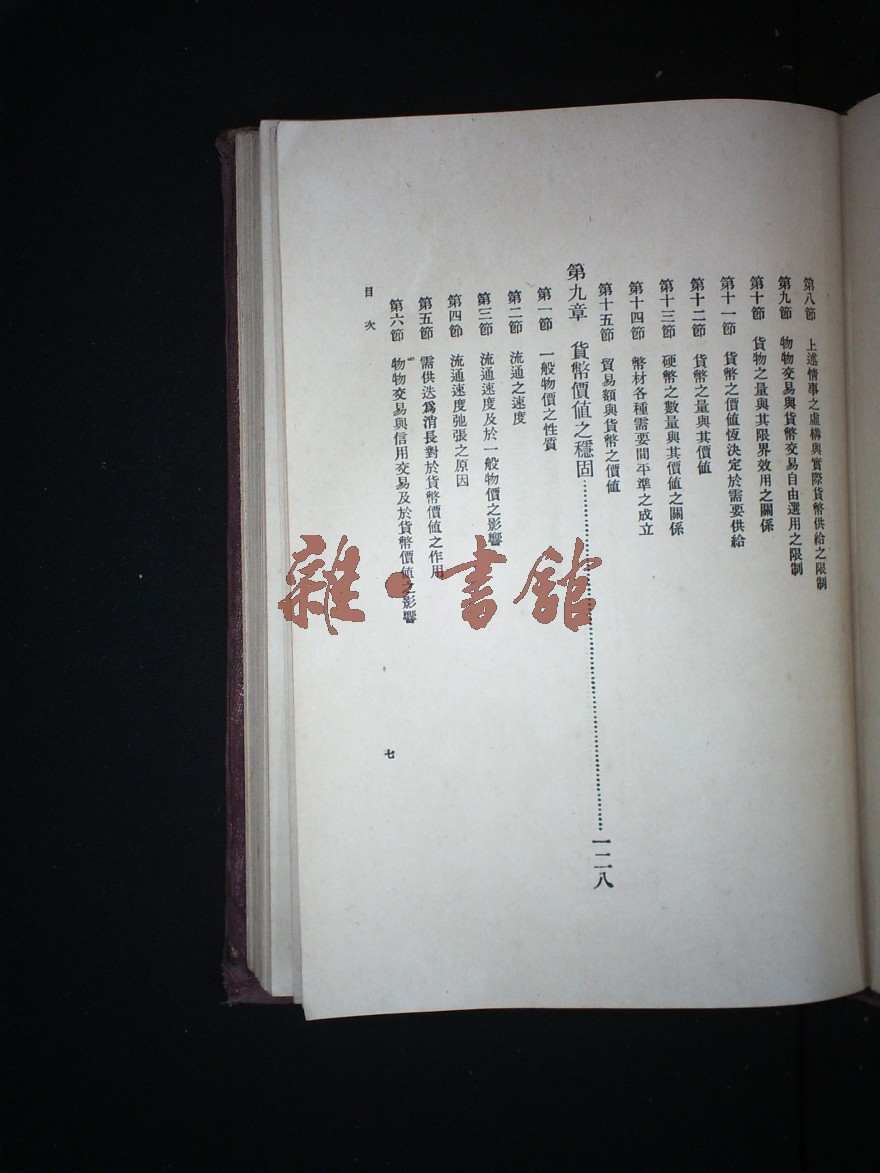 第八節　上述情事之虛構與實際貨幣供給之限制
第九節　物物交易與貨幣交易自由選用之限制
第十節　貨物之量與其限界效用之關係
第十一節　貨幣之價值恆決定於需要供給
第十二節　貨幣之量與其價值
第十三節　硬幣之數量與其價值之關係
第十四節　幣材各種需要間平準之成立
第十五節　貿易額與貨幣之價值
第九章　貨幣價值之穩固……一二八
第一節　一般物價之性質
第二節　流通之速度
第三節　流通速度及於一般物價之影響
第四節　流通速度弛張之原因
第五節　需供迭爲消長對於貨幣價值之作用
第六節　物物交易與信用交易及於貨幣價值之影響
目次
七
雜·書館